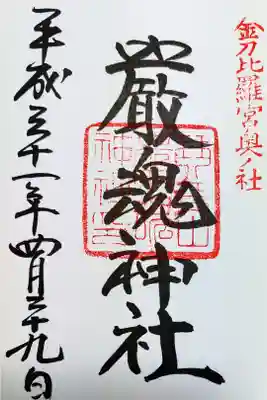 金刀比羅宮奥ノ社
嚴魂神社
平成三十一年四月二十九日